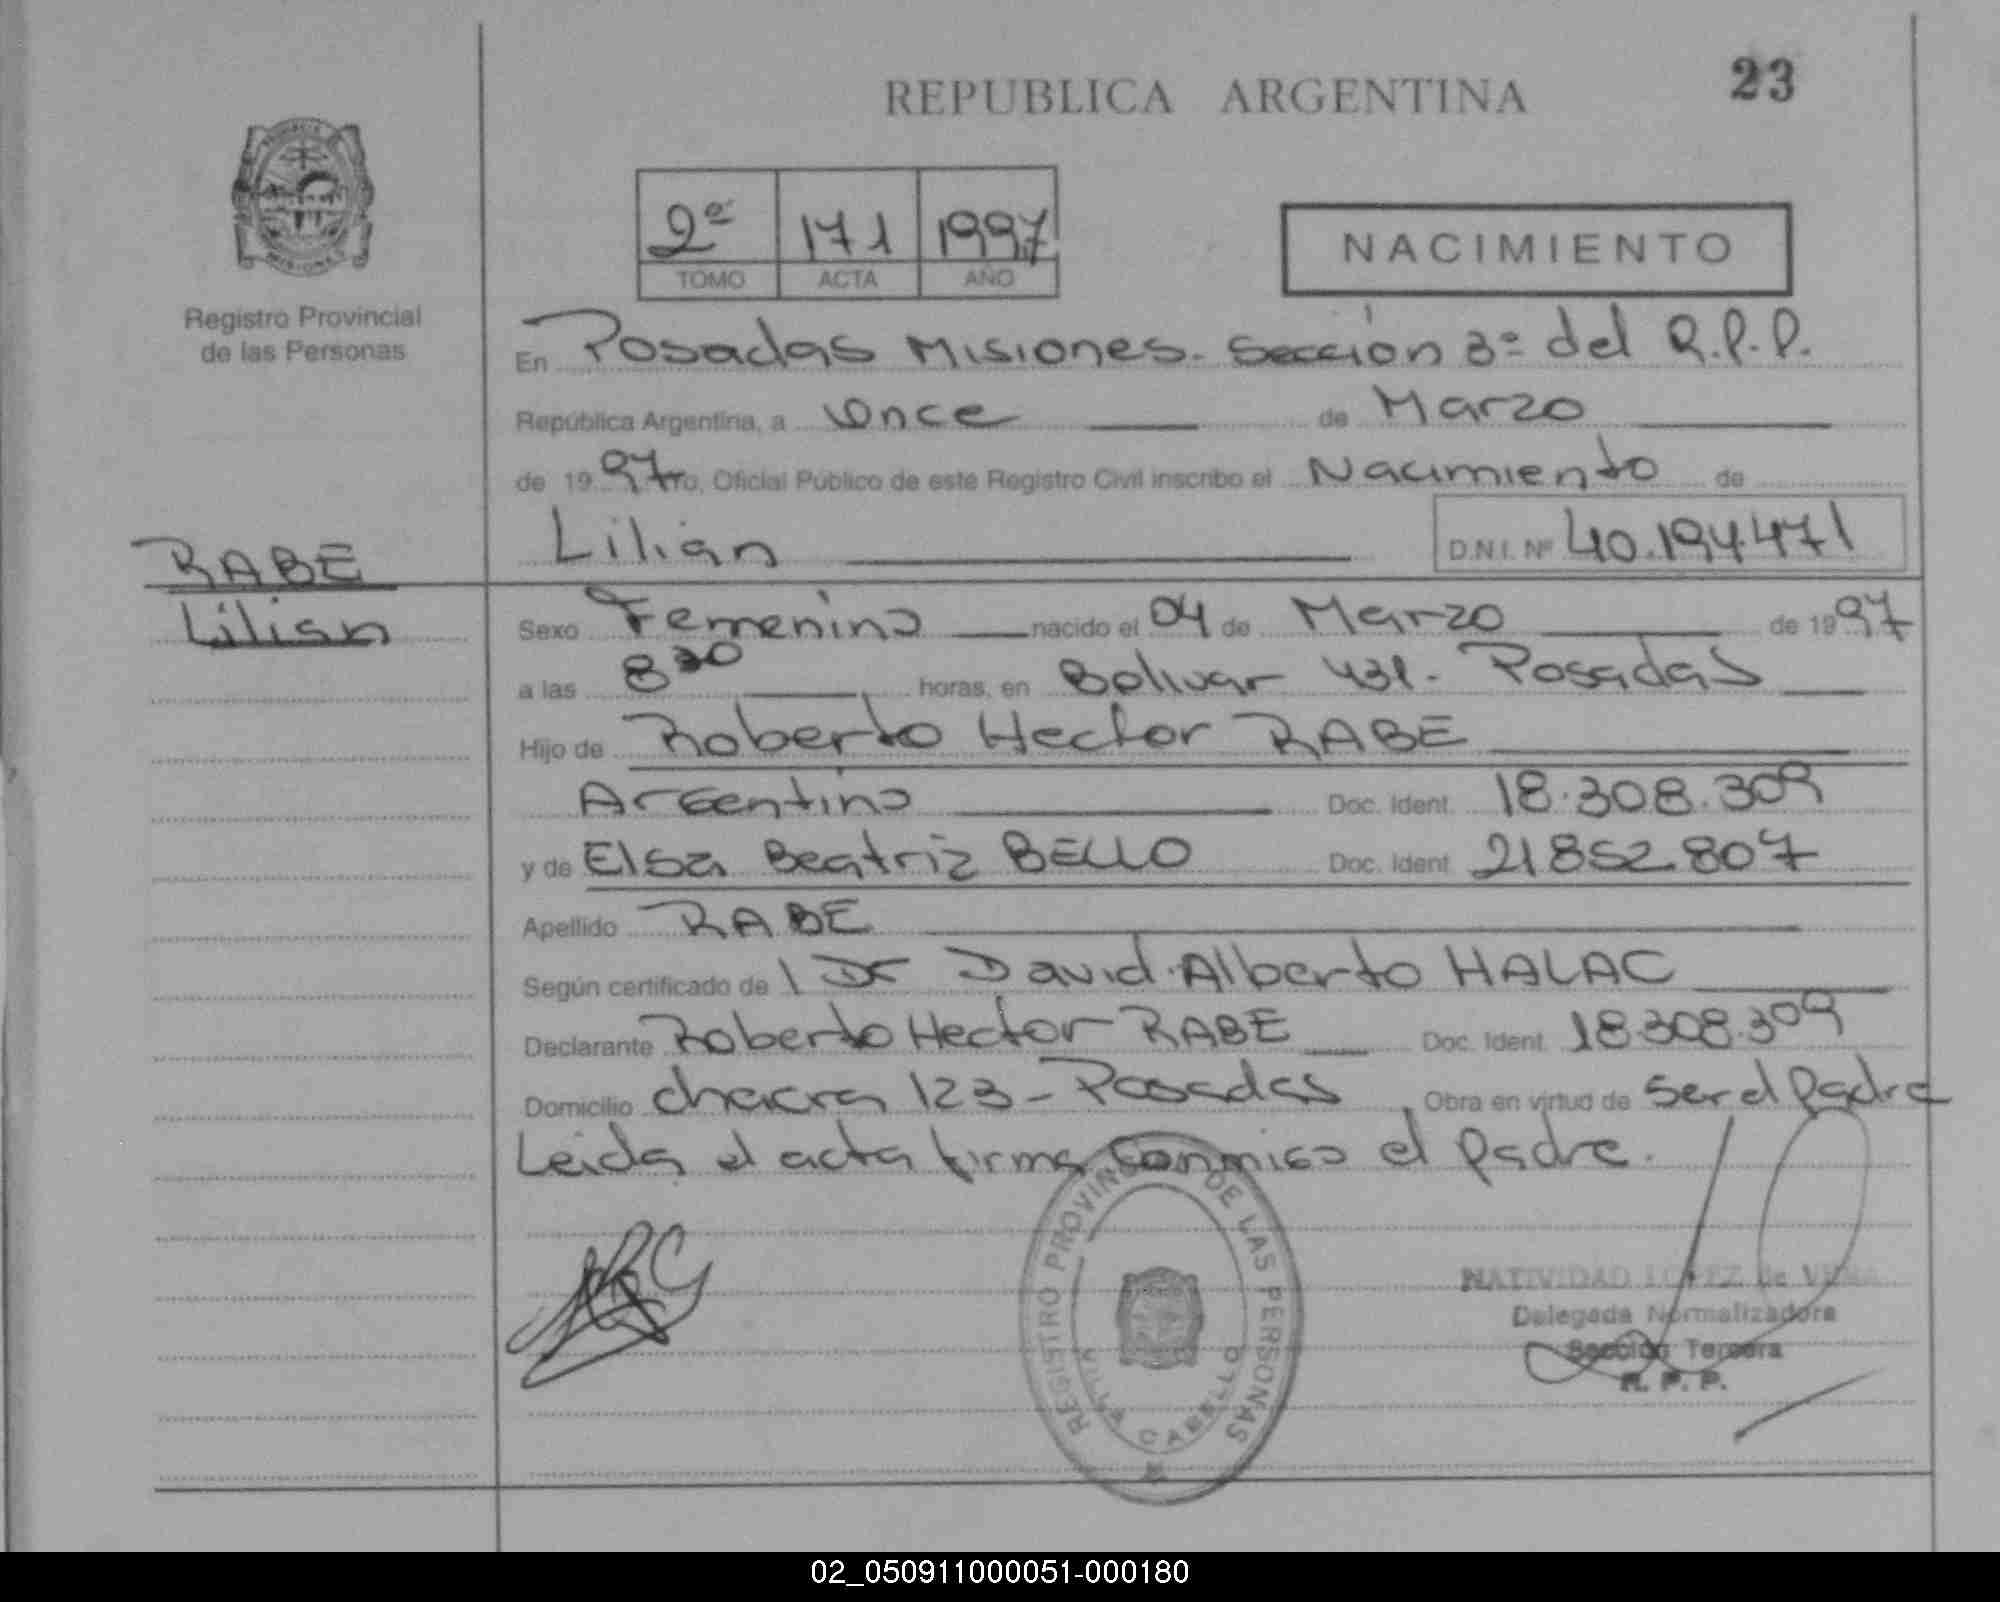 REPUBLICA ARGENTINA
23
2º 171 1997
TOMO ACTA AÑO
NACIMIENTO
PROVINCIA
MISIONES
Registro Provincial
de las Personas
En Posadas Misiones. Sección 3º del R.P.P.
República Argentina, a Once de Marzo
de 1997 yo, Oficial Público de este Registro Civil inscribo el Nacimiento de
Lilian D.N.I. Nº 40.194.471
RABE
Lilian
Sexo Femenino nacido el 04 de Marzo de 1997
a las 8 30 horas, en Bolivar 431. Posadas
Hijo de Roberto Hector RABE
Argentino Doc. Ident. 18.308.309
y de Elsa Beatriz BELLO Doc. Ident. 21852807
Apellido RABE
Según certificado de l Dr David Alberto HALAC
Declarante Roberto Hector RABE Doc. Ident. 18.308.309
Domicilio chacra 123 - Posadas, Obra en virtud de ser el Padre
Leida el acta firma conmigo el padre.
REGISTRO PROVINCIAL DE LAS PERSONAS
VILLA CABELLO
NATIVIDAD LOPEZ de
Delegada Normalizadora
Sección Tercera
R. P. P.
02_050911000051-000180